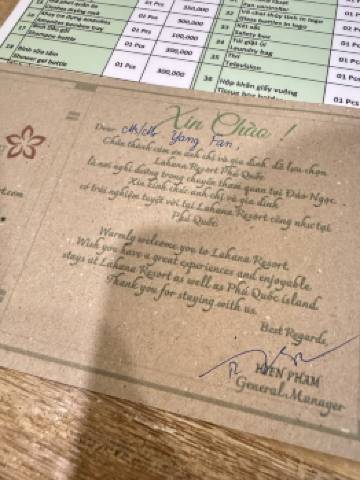 01 Pcs
350,000
01 Pcs
500,000
01 Pcs
100,000
17
Shampoo bottle
01 Pcs
200,000
18
Bình sữa tắm
Shower gel bottle
01 Pcs
800,000
32
Két sắt
Safety box
33
Túi giặt ủi
Laundry bag
Tivi
Television
36
Hộp khăn giấy vuông
Xin Chào !
Dear Mr/Ms Yang Fan,
Chân thành cảm ơn anh chị và gia đình đã lựa chọn
Lahana Resort Phú Quốc
là nơi nghỉ dưỡng trong chuyến tham quan tại Đảo Ngọc.
Xin kính chúc anh chị và gia đình
có trải nghiệm tuyệt vời tại Lahana Resort cũng như tại
Phú Quốc
Warmly welcome you to Lahana Resort.
Wish you have a great experiences and enjoyable
stays at Lahana Resort as well as Phú Quốc island.
Thank you for staying with us.
Best Regards,
HIEN PHAM
General Manager
rt.com